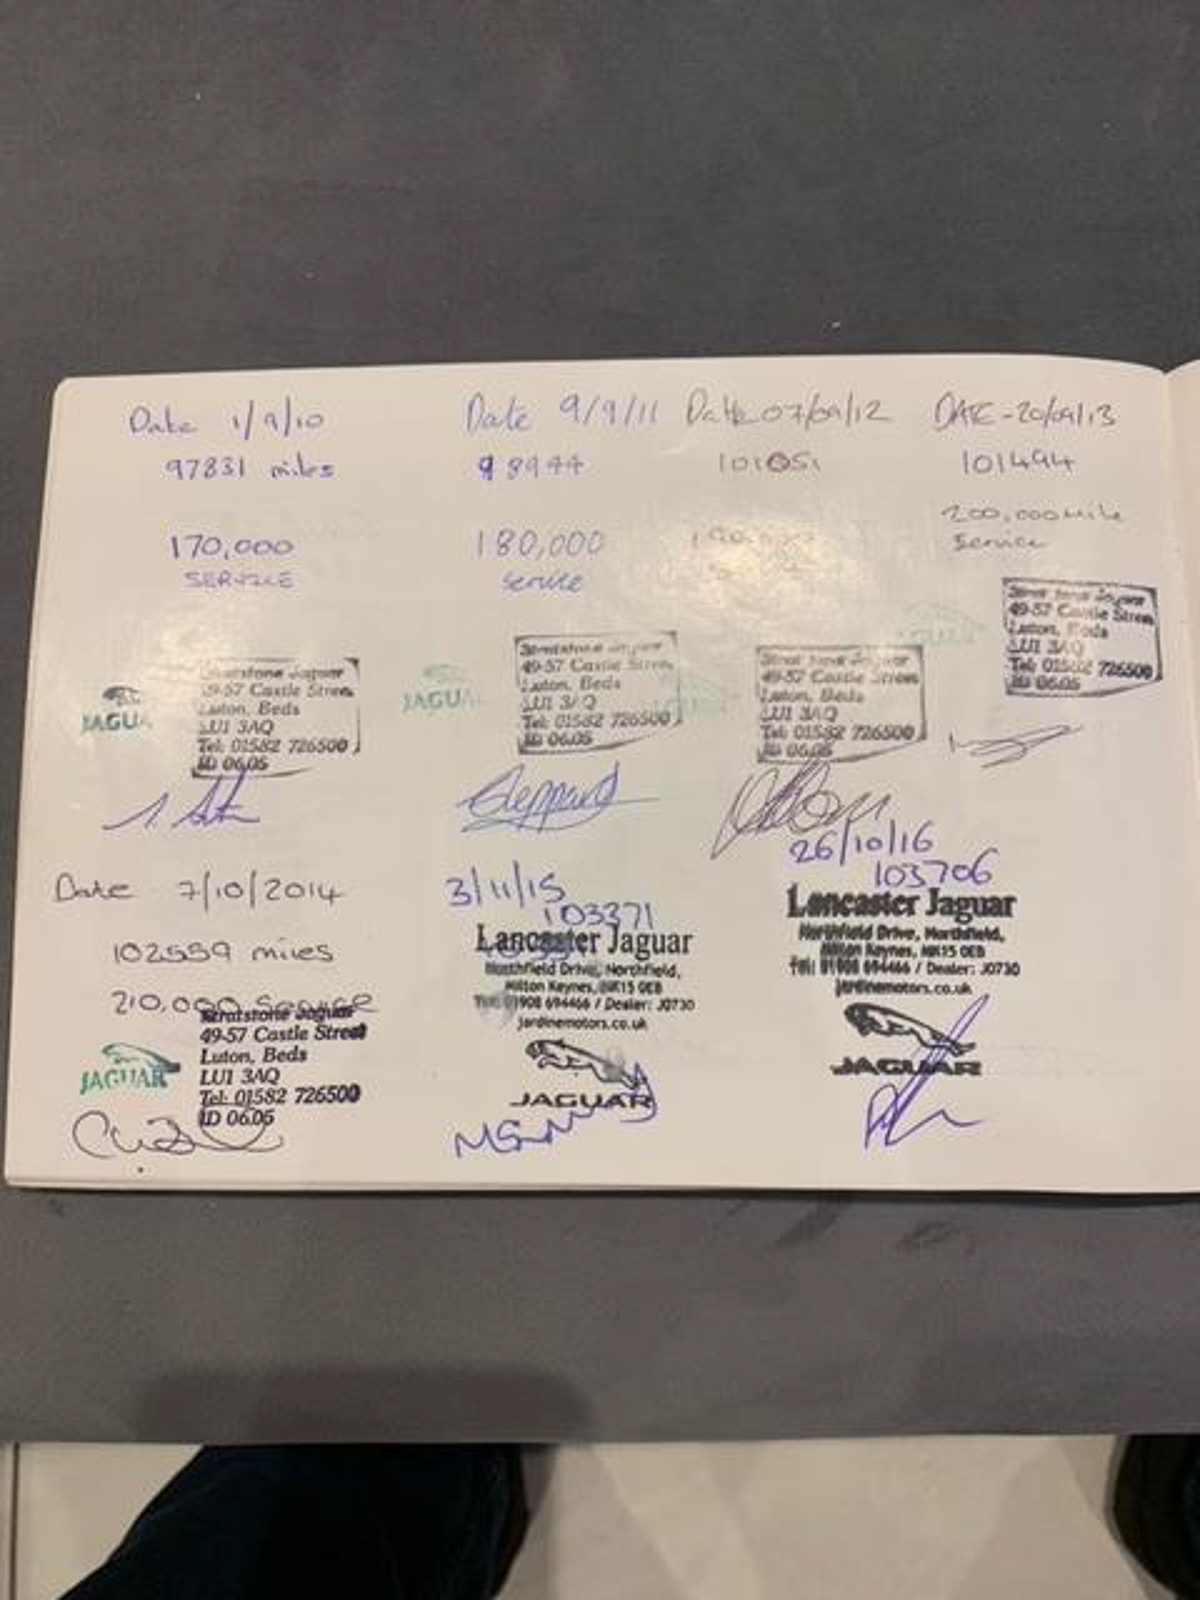 Date 1/9/10
97831 miles
170,000
SERVICE
JAGUA
Stratstone Jaguar
49-57 Castle Street
Luton, Beds
LU1 3AQ
Tel: 01582 726500
ID 06.05
Date 9/9/11
98944
180,000
Service
JAGUA
Stratstone Jaguar
49-57 Castle Street
Luton, Beds
LU1 3AQ
Tel: 01582 726500
ID 06.05
Sheppard
Date 07/09/12
101051
Stratstone Jaguar
49-57 Castle Street
Luton, Beds
LU1 3AQ
Tel: 01582 726500
ID 06.05
DATE - 20/09/13
101494
200,000 mile
Service
Stratstone Jaguar
49-57 Castle Street
Luton, Beds
LU1 3AQ
Tel: 01582 726500
ID 06.05
Date 7/10/2014
102559 miles
210,000 Service
JAGUAR
Stratstone Jaguar
49-57 Castle Street
Luton, Beds
LU1 3AQ
Tel: 01582 726500
ID 06.05
3/11/15
103371
Lancaster Jaguar
Northfield Drive, Northfield,
Milton Keynes, MK15 0EB
Tel: 01908 694466 / Dealer: J0730
jardinemotors.co.uk
JAGUAR
26/10/16
103706
Lancaster Jaguar
Northfield Drive, Northfield,
Milton Keynes, MK15 0EB
Tel: 01908 694466 / Dealer: J0730
jardinemotors.co.uk
JAGUAR